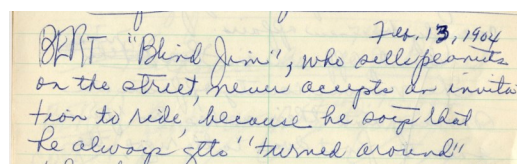 Feb. 13, 1904
BERT "Blind Jim", who sells peanuts
on the street, never accepts an invita
tion to ride, because he says that
he always gets "turned around"